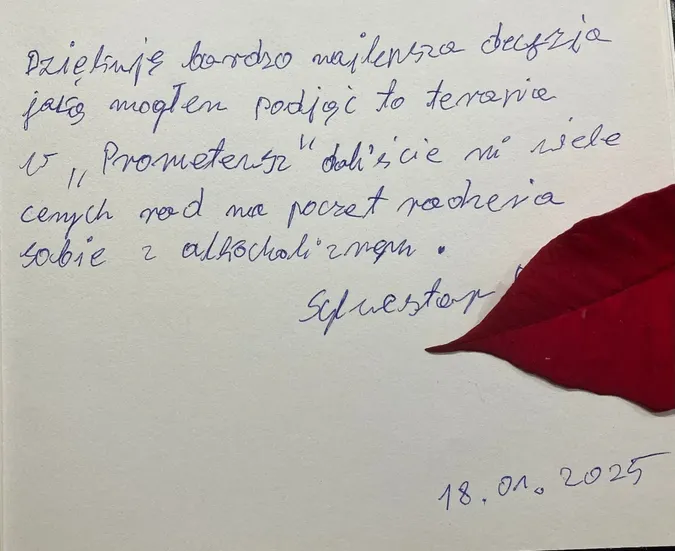 Dziękuję bardzo najlepsza decyzja
jaką mogłem podjąć to terapia
w „Prometeusz" daliście mi wiele
cenych rad na poczet radzenia
sobie z alkocholizmem.
Sylwester
18.01.2025